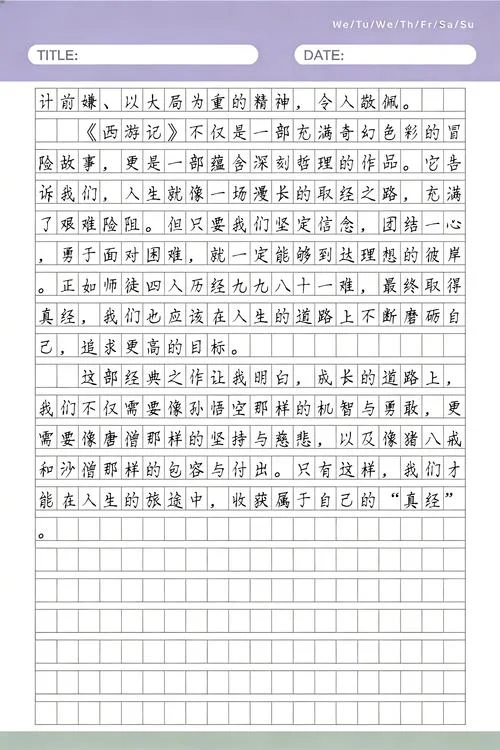 We/Tu/We/Th/Fr/Sa/Su
TITLE: DATE:
计前嫌、以大局为重的精神，令人敬佩。
《西游记》不仅是一部充满奇幻色彩的冒
险故事，更是一部蕴含深刻哲理的作品。它告
诉我们，人生就像一场漫长的取经之路，充满
了艰难险阻。但只要我们坚定信念，团结一心
，勇于面对困难，就一定能够到达理想的彼岸
。正如师徒四人历经九九八十一难，最终取得
真经，我们也应该在人生的道路上不断磨砺自
己，追求更高的目标。
这部经典之作让我明白，成长的道路上，
我们不仅需要像孙悟空那样的机智与勇敢，更
需要像唐僧那样的坚持与慈悲，以及像猪八戒
和沙僧那样的包容与付出。只有这样，我们才
能在人生的旅途中，收获属于自己的“真经”
。